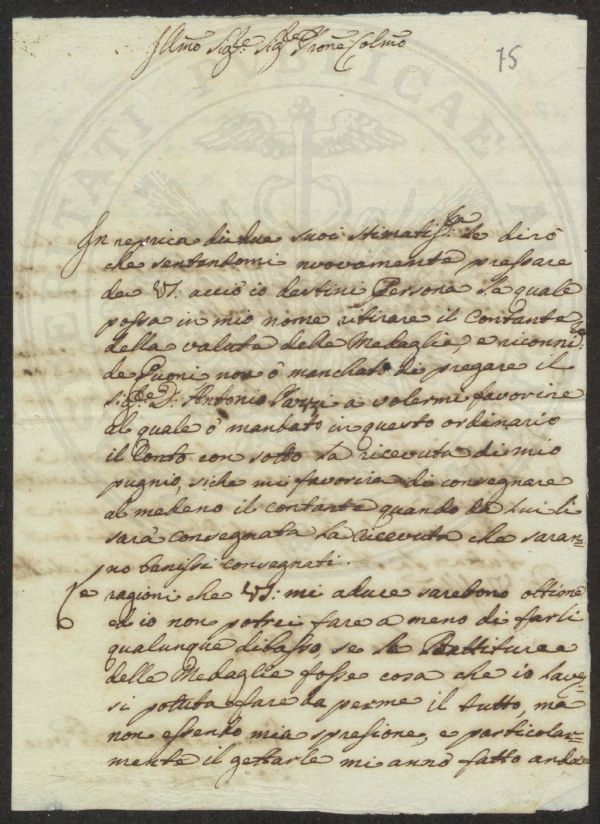 Illmo Sig.re Sig.re Prone Colmo
75
In reprica di due suoi stimatis.mi le dirò
che sentendomi nuovamente pressare
da VS: acciò io destini Persona la quale
possa in mio nome ritirare il Contante
della valuta delle Medaglie, e
de Cuoni non ò manchato di pregare il
Sig.re D: Antonio a volermi favorire
al quale ò mandato in questo ordinario
il Conto con sotto la ricevuta di mio
pugnio, siche mi favorira di consegnare
al medemo il contante quando da lui li
sarà consegnata la ricevuta che saran=
no benissi consegnati.
Le ragioni che VS: mi aduce sarebono ottime
ed io non potrei fare a meno di farli
qualunque dibasso, se la Battitura
delle Medaglie fosse cosa che io l'aves=
si potuta fare da perme il tutto, ma
non essendo mia spresione, e particolar=
mente il gettarle mi anno fatto anda
SECURITATI PUBLICAE